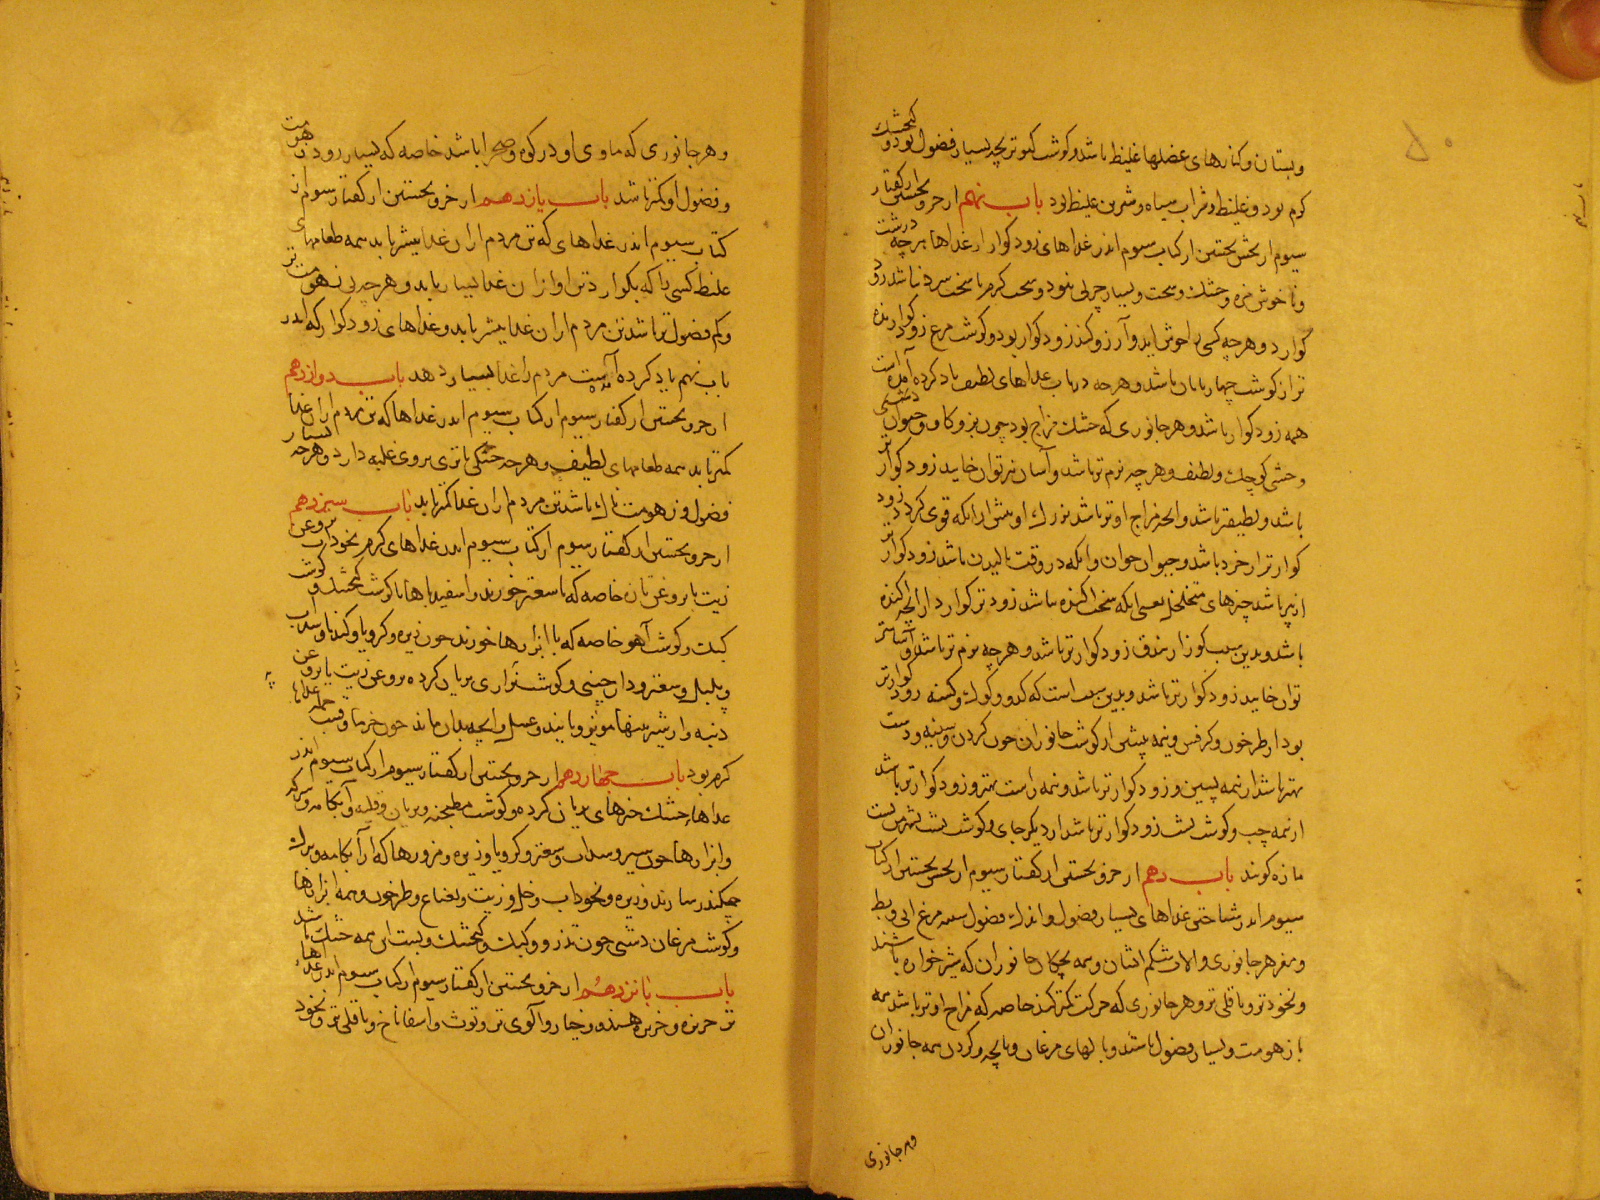 وبستان وکنارهای عضلها غلیظ باشد وکوشت کبوتر بچه بسیار فضول بود و کنجشک
کرم بود و غلیظ و شراب سیاه و شیرین غلیظ بود باب نهم از جزو نخستین از کفتار
سیوم از بخش نخستین از کتاب سیوم اندر غذاهای زود کوار از غذاها هرچه درشت
وناخوش مزه وخشک وسخت وبسیار چربی نبود وسخت کرم یا سخت سرد نباشد زود
کوارد وهرچه کسی را خوش اید وآرزو کند زود کوار بود وکوشت مرغ زود کوارنده
تر از کوشت چهارپایان باشد وهرچه در باب غذاهای لطیف یاد کرده آمده است
همه زود کوار باشد وهر جانوری که خشک مزاج بود چون بز و کاو و حیوان دشتی
وحشی کوچک ولطیف وهرچه نرم تر باشد وآسان تر توان خایید زود کوارتر
باشد ولطیفتر باشد وانچه مزاج او تر باشد بزرک او بیش از انکه قوی کردد زود
کوارتر از خرد باشد وحیوان جوان وانکه در وقت بالیدن باشد زود کوارتر
از پیر باشد چیزهای متخلخل یعنی انکه سخت اکنده نباشد زود تر کوارد از انچه اکنده
باشد وبدین سبب کوز از بندق زود کوارتر باشد وهرچه نرم تر باشد و آسانتر
توان خایید زود کوارتر باشد وبدین سبب است که کدو وکوک وکسنه زود کوارتر
بود از طرخون وکرفس ونیمه پیشین از کوشت جانوران چون کردن وسینه ودست
بهتر باشد از نیمه پسین و زود کوارتر باشد ونیمه راست بهتر و زود کوارتر باشد
از نیمه چپ وکوشت پشت زود کوارتر باشد از دیکر جای وکوشت پشت
مازه کویند باب دهم از جزو نخستین از کفتار سیوم از بخش نخستین از کتاب
سیوم اندر شناختن غذاهای بسیار فضول واندک فضول همه مرغ ابی وبط
ومغز هر جانوری والات شکم ایشان وهمه بچکان جانوران که شیرخواره باشند
ونخود تر وباقلی تر وهر جانوری که حرکت کمتر کند خاصه که مزاج او تر باشد همه
با زهومت وبسیار فضول باشند وبالهای مرغان وپاچه وکردن همه جانوران
وهر جانوری
وهر جانوری که ماوی او در کوه وصحرا باشد خاصه که بسیار رود زهومت
وفضول او کمتر باشد باب یازدهم از جزو نخستین از کفتار سیوم از
کتاب سیوم اندر غذاهای که تن مردم از ان غذا بیشتر یابد همه طعامهای
غلیظ کسی را که بکوارد تن او از ان غذا بسیار یابد وهرچه بی زهومت تر
وکم فضول تر باشد تن مردم از ان غذا بیشتر یابد وغذاهای زود کوار که اندر
باب نهم یاد کرده آمده است مردم را غذا بسیار دهد باب دوازدهم
از جزو نخستین از کفتار سیوم از کتاب سیوم اندر غذاها که تن مردم از ان غذا
کمتر یابد همه طعامهای لطیف وهرچه خشکی یا تری بروی غلبه دارد وهرچه بسیار
فضول و زهومت ناک باشد تن مردم از ان غذا کمتر یابد باب سیزدهم
از جزو نخستین از کفتار سیوم از کتاب سیوم اندر غذاهای کرم نخوداب بروغن
زیت یا بروغن بان خاصه که با سعتر خورند واسفیدباها با کوشت کنجشک و کوشت
کبک وکوشت آهو خاصه که با ابزارها خورند چون زیره وکرویا وکندنا وسداب
وپلپل وسعتر ودارچینی وکوشت شواری بریان کرده بروغن زیت یا بروغن
دنبه واز شیرینیها مویز وپانید وعسل وانچه بدان ماند چون خرما وقسب جمله غذاها
کرم بود باب چهاردهم از جزو نخستین از کفتار سیوم از کتاب سیوم اندر
غذاهای خشک چیزهای بریان کرده وکوشت مطبخته وبریان وقلیه وآبکامه وسرکه
وابزارها چون سیر وسداب وسعتر وکرویا وزیره ومزورها که از آبکامه وبرک
چکندر سازند وزیره ونخوداب وخل و زیت ونعناع وطرخون وهمه ابزارها
وکوشت مرغان دشتی چون تذرو وکبک وکنجشک وپست این همه خشک باشد
باب پانزدهم از جزو نخستین از کفتار سیوم از کتاب سیوم اندر غذاهاء
تر خربزه وخربزه هندو وخیار وآلوی تر وتوت واسفاناخ وباقلی تر ونخود